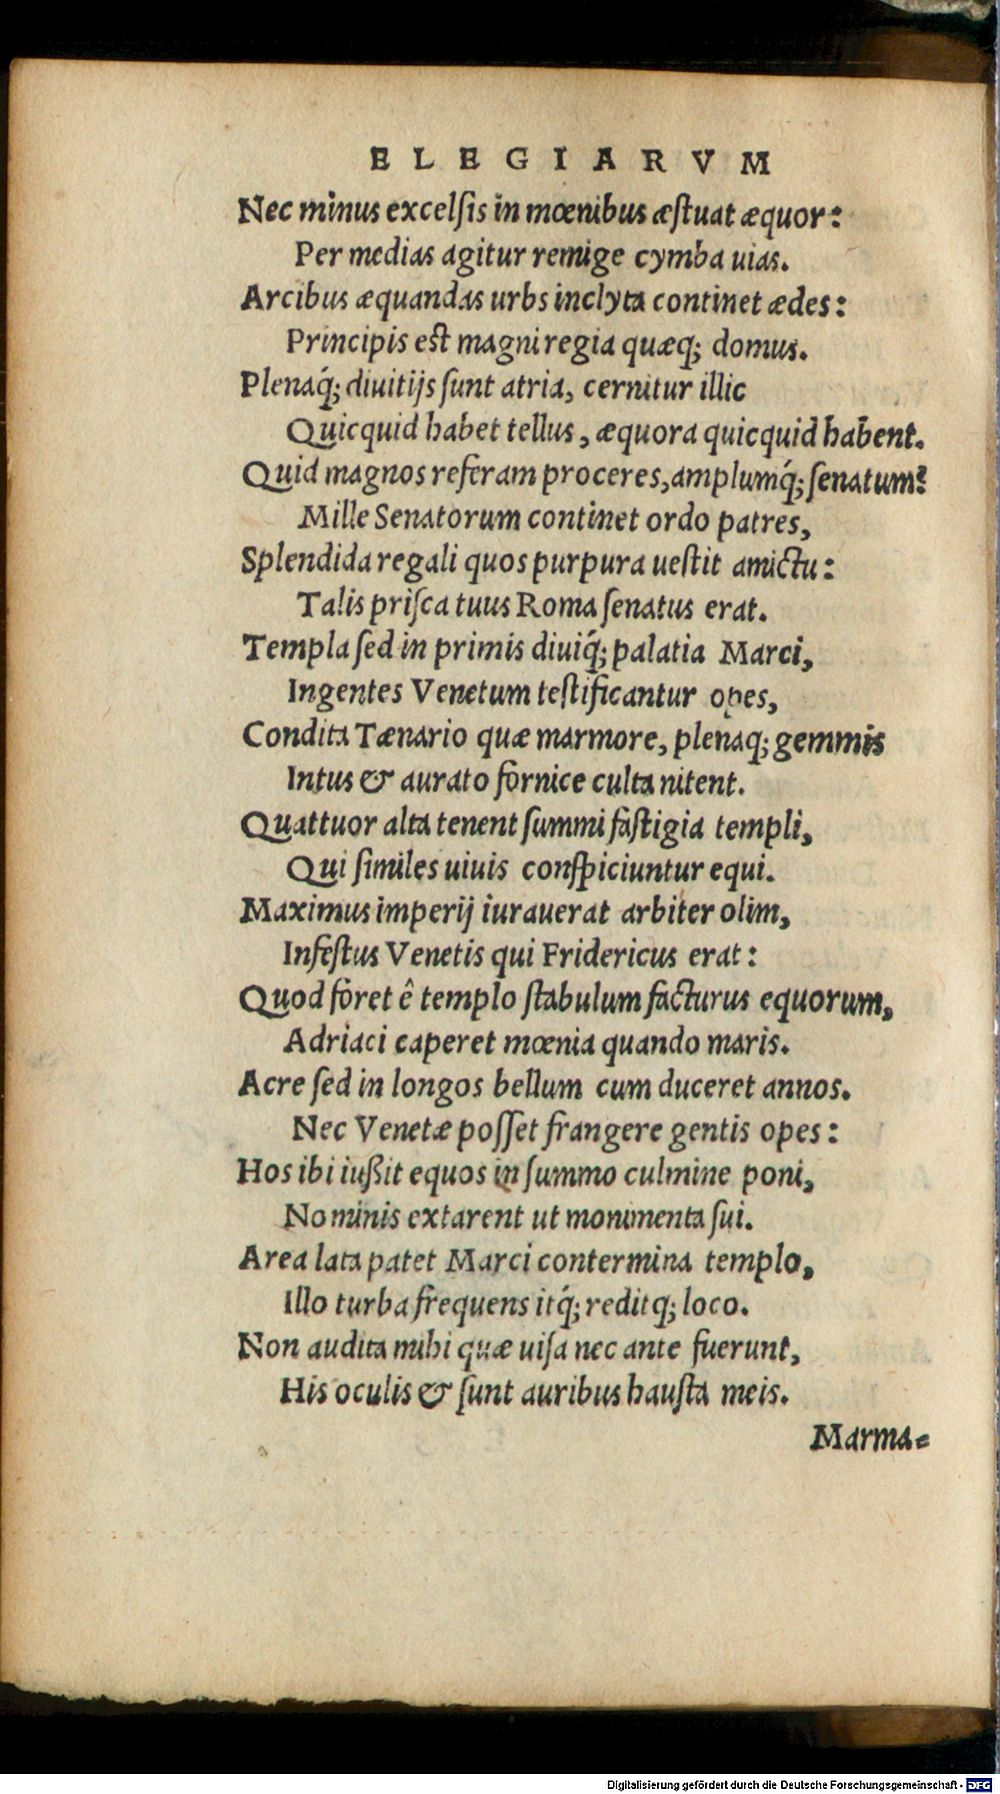 ELEGIARVM
Nec minus excelſis in mœnibus æſtuat æquor:
Per medias agitur remige cymba uias.
Arcibus æquandas urbs inclyta continet ædes:
Principis est magni regia quæq; domus.
Plenaq́; diuitijs ſunt atria, cernitur illic
Quicquid habet tellus, æquora quicquid habent.
Quid magnos referam proceres, amplumq́; ſenatum?
Mille Senatorum continet ordo patres,
Splendida regali quos purpura ueſtit amictu:
Talis priſca tuus Roma ſenatus erat.
Templa ſed in primis diuiq́; palatia Marci,
Ingentes Venetum teſtificantur opes,
Condita Tænario quæ marmore, plenaq; gemmis
Intus & aurato fornice culta nitent.
Quattuor alta tenent ſummi faſtigia templi,
Qui ſimiles uiuis conſpiciuntur equi.
Maximus imperij iurauerat arbiter olim,
Infeſtus Venetis qui Fridericus erat:
Quod foret ê templo ſtabulum facturus equorum,
Adriaci caperet mœnia quando maris.
Acre ſed in longos bellum cum duceret annos.
Nec Venetæ poſſet frangere gentis opes:
Hos ibi iußit equos in ſummo culmine poni,
Nominis extarent ut monimenta ſui.
Area lata patet Marci contermina templo,
Illo turba frequens itq́; reditq; loco.
Non audita mihi quæ uiſa nec ante fuerunt,
His oculis & ſunt auribus hauſta meis.
Marma-
Digitalisierung gefördert durch die Deutsche Forschungsgemeinschaft - DFG